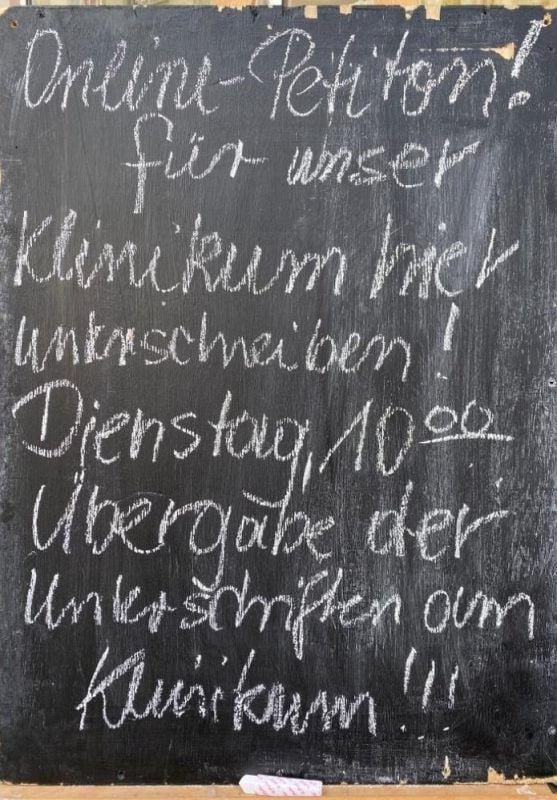 Online-Petiton!
für unser
Klinikum hier
unterschreiben!
Dienstag, 10⁰⁰
Übergabe der
Unterschriften am
Klinikum!!!